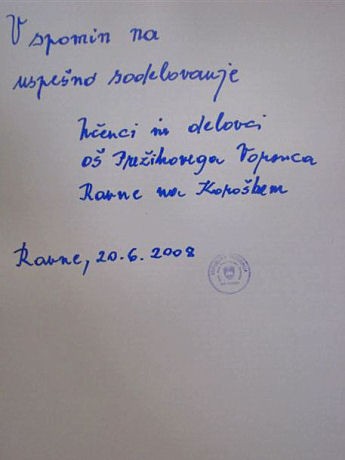 V spomin na
uspešno sodelovanje
Učenci in delavci
oš Prežihovega Voranca
Ravne na Koroškem
Ravne, 20.6.2008